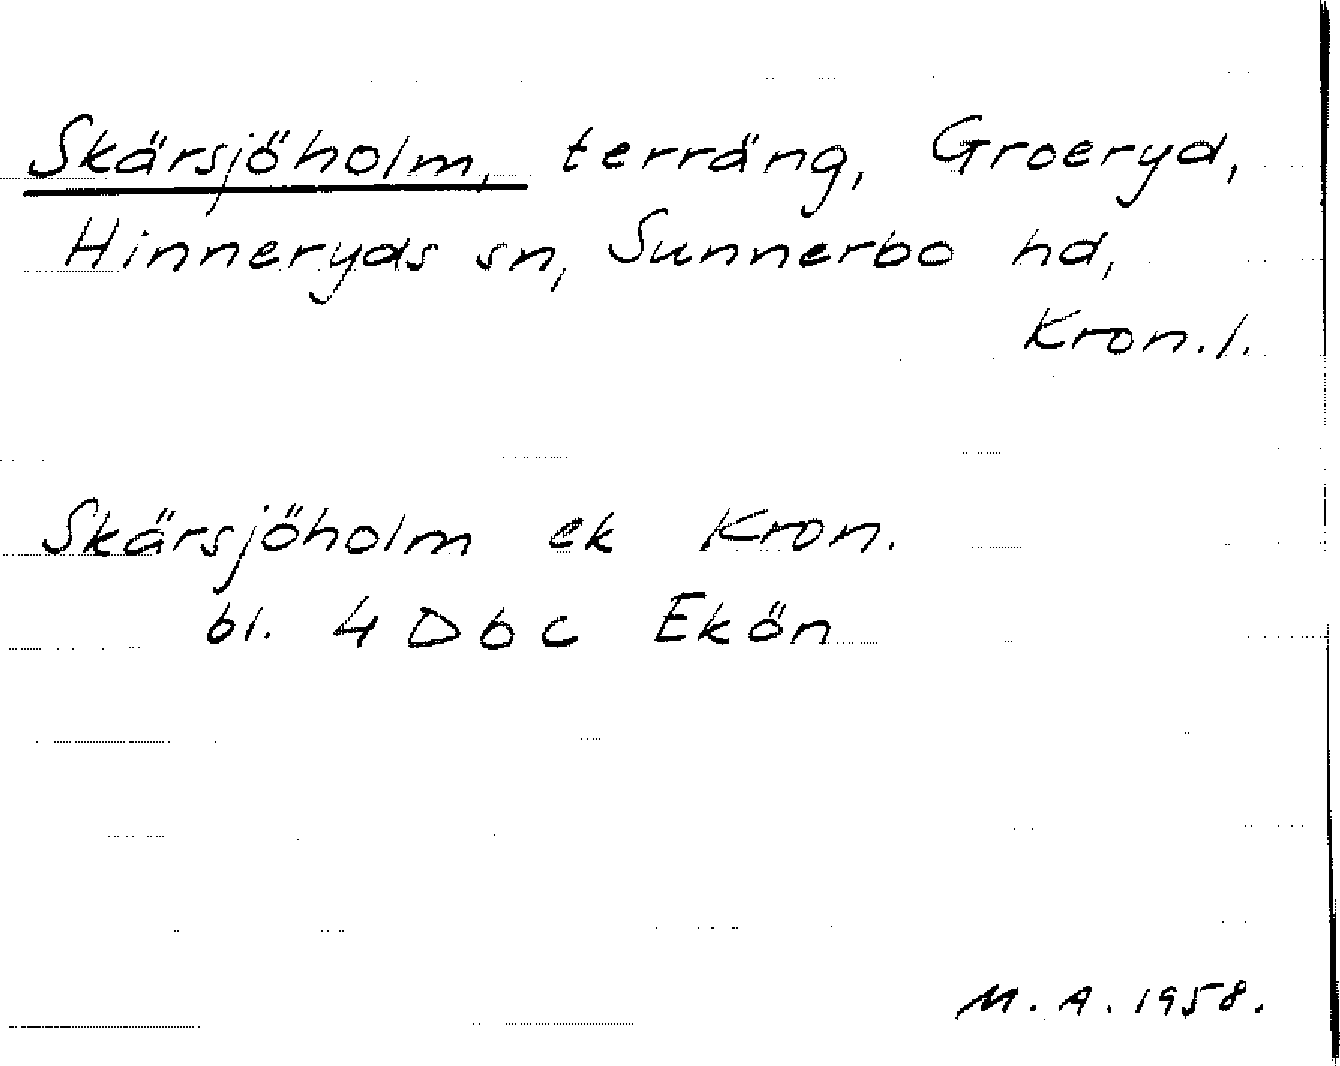 Skärsjöholm, terräng, Groeryd,
Hinneryds sn, Sunnerbo hd,
Kron.l.
Skärsjöholm ek Kron.
bl. 4 D b c Ekön
M.A. 1958.